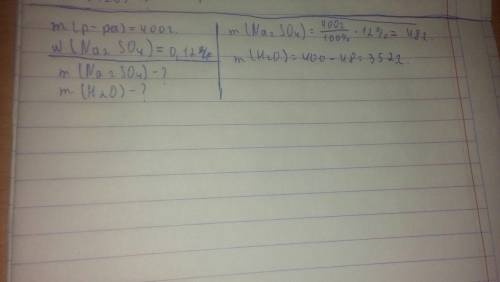 m(р-ра)=400г.
w(Na₂SO₄)=0,12%
m(Na₂SO₄)-?
m(H₂O)-?
m(Na₂SO₄)=400г/100%·12%=48г.
m(H₂O)=400-48=352г.